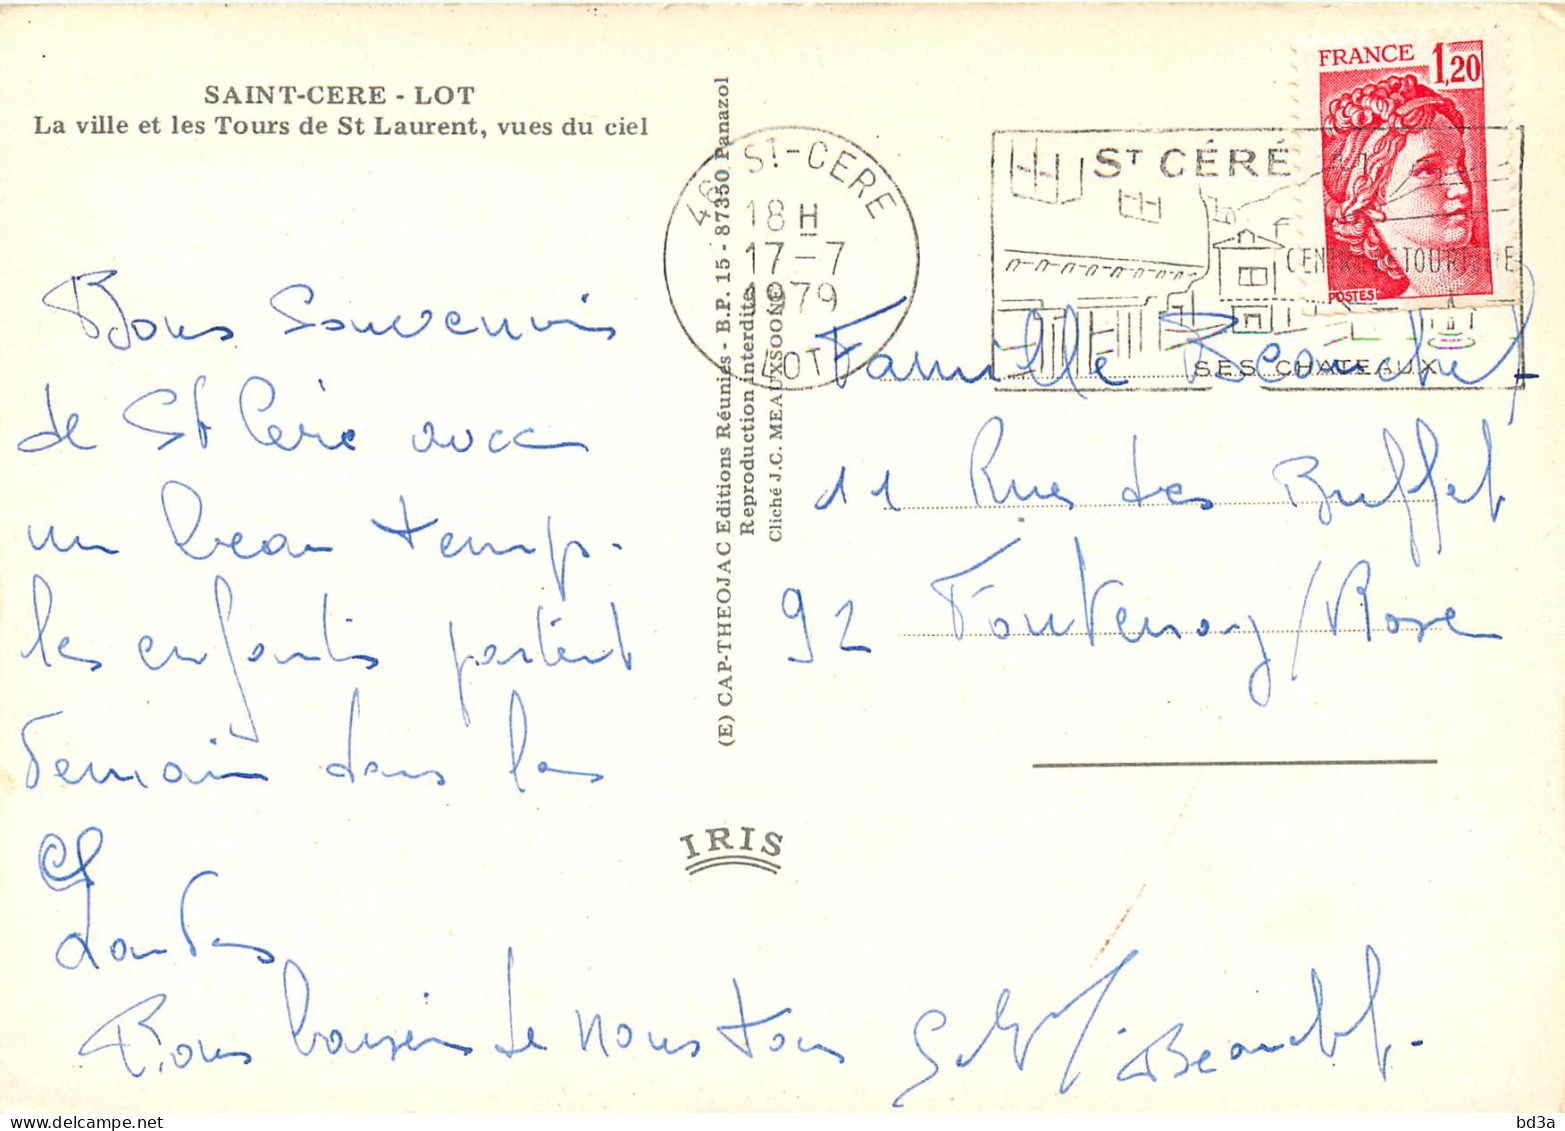 SAINT-CERE - LOT
La ville et les Tours de St Laurent, vues du ciel
Bons Souvenirs
de St Céré avec
un beau temps.
les enfants partent
demain dans les
Landes
Bons baisers de nous tous
(E) CAP-THEOJAC Editions Réunies - B.P. 15 - 87350 Panazol
Reproduction interdite
Cliché J.C. MEAUXSOONE
IRIS
46 ST-CERE
18 H
17-7
1979
LOT
ST CÉRÉ
CENTRE DE TOURISME
SES CHATEAUX
FRANCE 1,20
POSTES
Famille
11 Rue des Buffet
92 Fontenay/Roses
bd3a